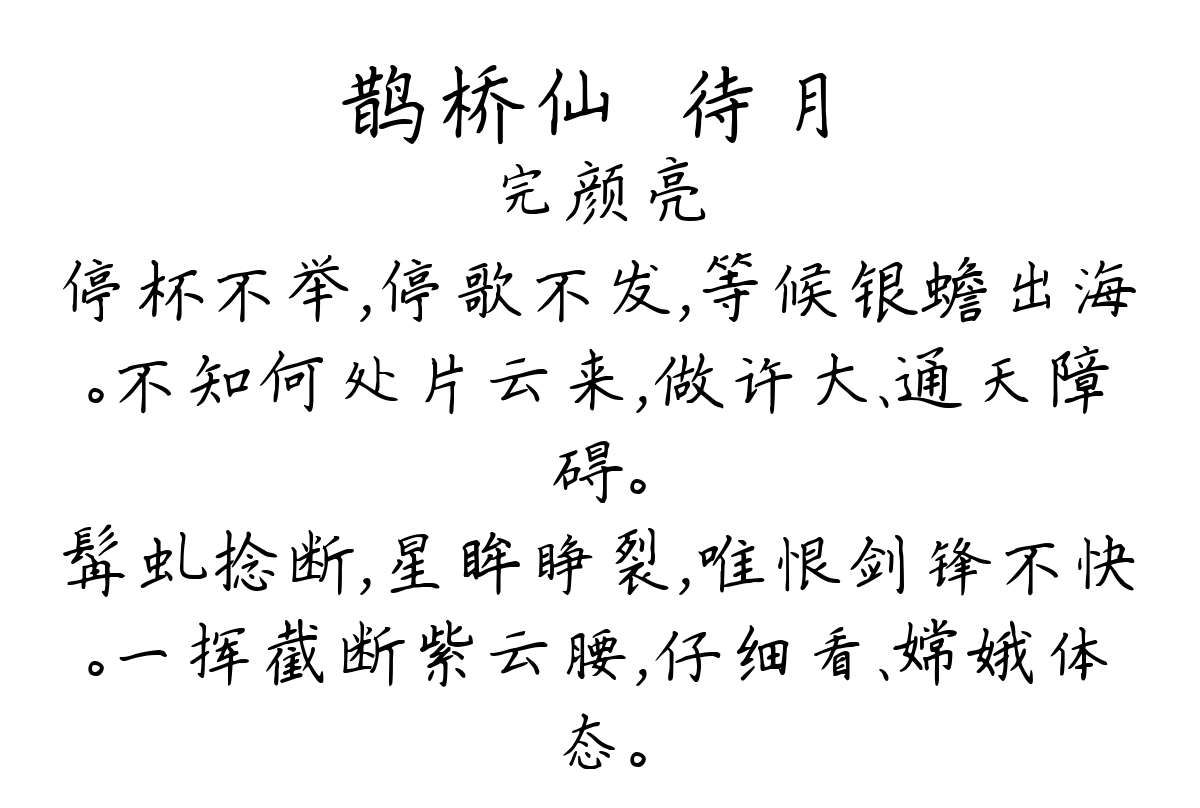 鹊桥仙 待月
完颜亮
停杯不举,停歌不发,等候银蟾出海
。不知何处片云来,做许大、通天障
碍。
髯虬捻断,星眸睁裂,唯恨剑锋不快
。一挥截断紫云腰,仔细看、嫦娥体
态。